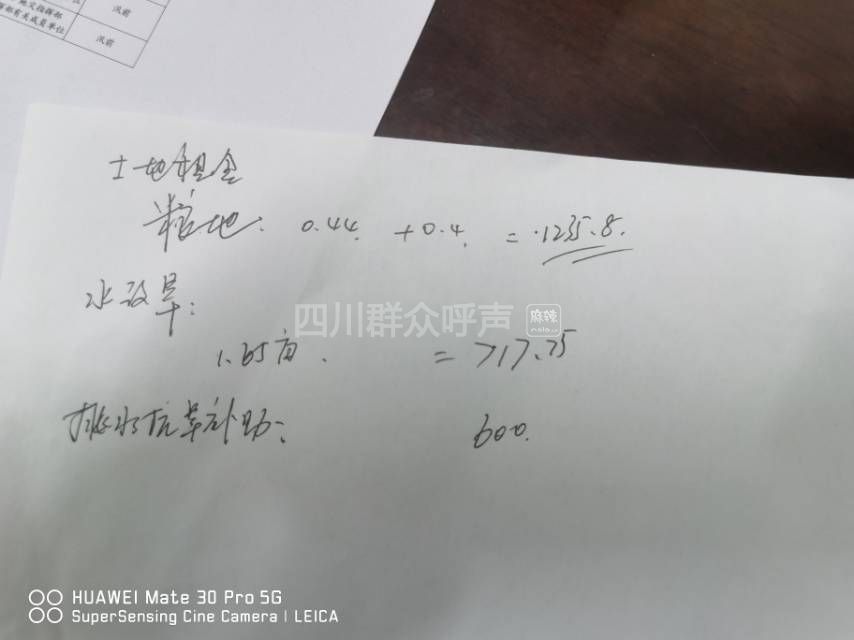 汛前
部有关成员单位
汛前
土地租金
粮地: 0.44 +0.4 = 1235.8.
水改旱:
四川群众呼声 麻辣
1.65亩. = 717.75
排水抗旱补助: 600.
HUAWEI Mate 30 Pro 5G
SuperSensing Cine Camera | LEICA